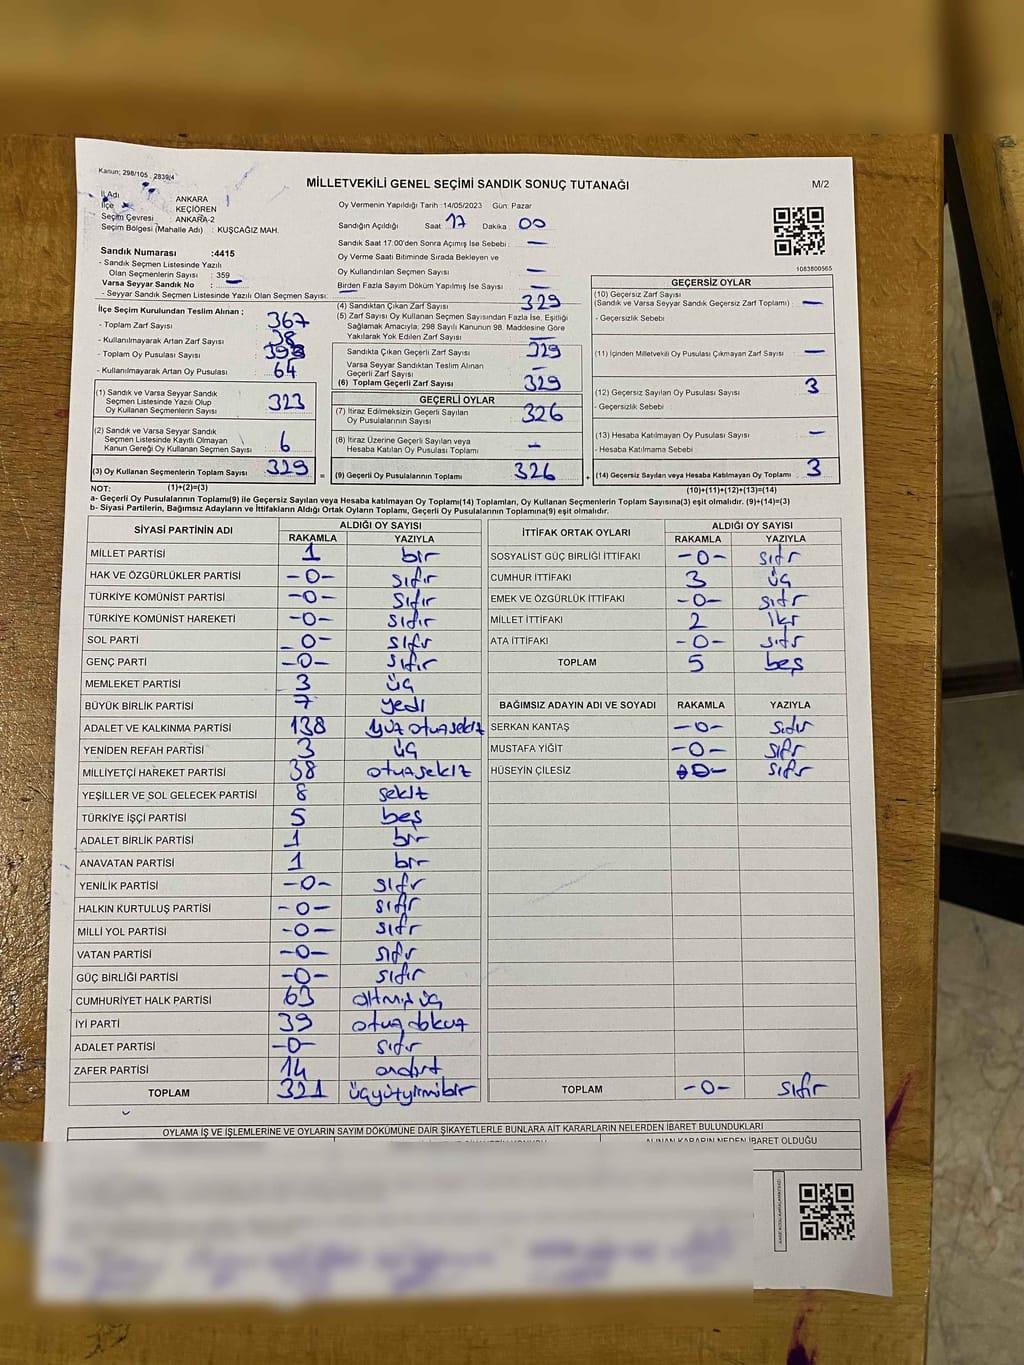 Kanun; 298/105 2839/4
MİLLETVEKİLİ GENEL SEÇİMİ SANDIK SONUÇ TUTANAĞI
M/2
İl Adı : ANKARA
İlçe : KEÇİÖREN
Seçim Çevresi : ANKARA-2
Seçim Bölgesi (Mahalle Adı) : KUŞCAĞIZ MAH.
Sandık Numarası :4415
- Sandık Seçmen Listesinde Yazılı
Olan Seçmenlerin Sayısı : 359
Varsa Seyyar Sandık No : —
- Seyyar Sandık Seçmen Listesinde Yazılı Olan Seçmen Sayısı:
İlçe Seçim Kurulundan Teslim Alınan ;
- Toplam Zarf Sayısı : 367
- Kullanılmayarak Artan Zarf Sayısı : 38
- Toplam Oy Pusulası Sayısı : 393
- Kullanılmayarak Artan Oy Pusulası : 64
(1) Sandık ve Varsa Seyyar Sandık
Seçmen Listesinde Yazılı Olup
Oy Kullanan Seçmenlerin Sayısı : 323
(2) Sandık ve Varsa Seyyar Sandık
Seçmen Listesinde Kayıtlı Olmayan
Kanun Gereği Oy Kullanan Seçmen Sayısı : 6
(3) Oy Kullanan Seçmenlerin Toplam Sayısı : 329
Oy Vermenin Yapıldığı Tarih :14/05/2023 Gün: Pazar
Sandığın Açıldığı Saat 17 Dakika 00
Sandık Saat 17:00'den Sonra Açımış İse Sebebi : —
Oy Verme Saati Bitiminde Sırada Bekleyen ve
Oy Kullandırılan Seçmen Sayısı : —
Birden Fazla Sayım Döküm Yapılmış İse Sayısı : —
(4) Sandıktan Çıkan Zarf Sayısı : 329
(5) Zarf Sayısı Oy Kullanan Seçmen Sayısından Fazla İse, Eşitliği
Sağlamak Amacıyla; 298 Sayılı Kanunun 98. Maddesine Göre
Yakılarak Yok Edilen Zarf Sayısı : —
Sandıkta Çıkan Geçerli Zarf Sayısı : 329
Varsa Seyyar Sandıktan Teslim Alınan
Geçerli Zarf Sayısı : —
(6) Toplam Geçerli Zarf Sayısı : 329
GEÇERLİ OYLAR
(7) İtiraz Edilmeksizin Geçerli Sayılan
Oy Pusulalarının Sayısı : 326
(8) İtiraz Üzerine Geçerli Sayılan veya
Hesaba Katılan Oy Pusulası Toplamı : —
= (9) Geçerli Oy Pusulalarının Toplamı : 326
1083800565
GEÇERSİZ OYLAR
(10) Geçersiz Zarf Sayısı
(Sandık ve Varsa Seyyar Sandık Geçersiz Zarf Toplamı) : —
- Geçersizlik Sebebi :
(11) İçinden Milletvekili Oy Pusulası Çıkmayan Zarf Sayısı : —
(12) Geçersiz Sayılan Oy Pusulası Sayısı : 3
- Geçersizlik Sebebi :
(13) Hesaba Katılmayan Oy Pusulası Sayısı : —
- Hesaba Katılmama Sebebi :
+ (14) Geçersiz Sayılan veya Hesaba Katılmayan Oy Toplamı : 3
NOT: (1)+(2)=(3) (10)+(11)+(12)+(13)=(14)
a- Geçerli Oy Pusulalarının Toplamı(9) ile Geçersiz Sayılan veya Hesaba katılmayan Oy Toplamı(14) Toplamları, Oy Kullanan Seçmenlerin Toplam Sayısına(3) eşit olmalıdır. (9)+(14)=(3)
b- Siyasi Partilerin, Bağımsız Adayların ve İttifakların Aldığı Ortak Oyların Toplamı, Geçerli Oy Pusulalarının Toplamına(9) eşit olmalıdır.
SİYASİ PARTİNİN ADI ALDIĞI OY SAYISI
RAKAMLA YAZIYLA
MİLLET PARTİSİ 1 bir
HAK VE ÖZGÜRLÜKLER PARTİSİ -0- sıfır
TÜRKİYE KOMÜNİST PARTİSİ -0- sıfır
TÜRKİYE KOMÜNİST HAREKETİ -0- sıfır
SOL PARTİ -0- sıfır
GENÇ PARTİ -0- sıfır
MEMLEKET PARTİSİ 3 üç
BÜYÜK BİRLİK PARTİSİ 7 yedi
ADALET VE KALKINMA PARTİSİ 138 yüz otuzsekiz
YENİDEN REFAH PARTİSİ 3 üç
MİLLİYETÇİ HAREKET PARTİSİ 38 otuzsekiz
YEŞİLLER VE SOL GELECEK PARTİSİ 8 sekiz
TÜRKİYE İŞÇİ PARTİSİ 5 beş
ADALET BİRLİK PARTİSİ 1 bir
ANAVATAN PARTİSİ 1 bir
YENİLİK PARTİSİ -0- sıfır
HALKIN KURTULUŞ PARTİSİ -0- sıfır
MİLLİ YOL PARTİSİ -0- sıfır
VATAN PARTİSİ -0- sıfır
GÜÇ BİRLİĞİ PARTİSİ -0- sıfır
CUMHURİYET HALK PARTİSİ 63 altmış üç
İYİ PARTİ 39 otuz dokuz
ADALET PARTİSİ -0- sıfır
ZAFER PARTİSİ 14 ondört
TOPLAM 321 üçyüzyirmibir
İTTİFAK ORTAK OYLARI ALDIĞI OY SAYISI
RAKAMLA YAZIYLA
SOSYALİST GÜÇ BİRLİĞİ İTTİFAKI -0- sıfır
CUMHUR İTTİFAKI 3 üç
EMEK VE ÖZGÜRLÜK İTTİFAKI -0- sıfır
MİLLET İTTİFAKI 2 iki
ATA İTTİFAKI -0- sıfır
TOPLAM 5 beş
BAĞIMSIZ ADAYIN ADI VE SOYADI RAKAMLA YAZIYLA
SERKAN KANTAŞ -0- sıfır
MUSTAFA YİĞİT -0- sıfır
HÜSEYİN ÇİLESİZ -0- sıfır
TOPLAM -0- sıfır
OYLAMA İŞ VE İŞLEMLERİNE VE OYLARIN SAYIM DÖKÜMÜNE DAİR ŞİKAYETLERLE BUNLARA AİT KARARLARIN NELERDEN İBARET BULUNDUKLARI
ALINAN KARARIN NEDEN İBARET OLDUĞU